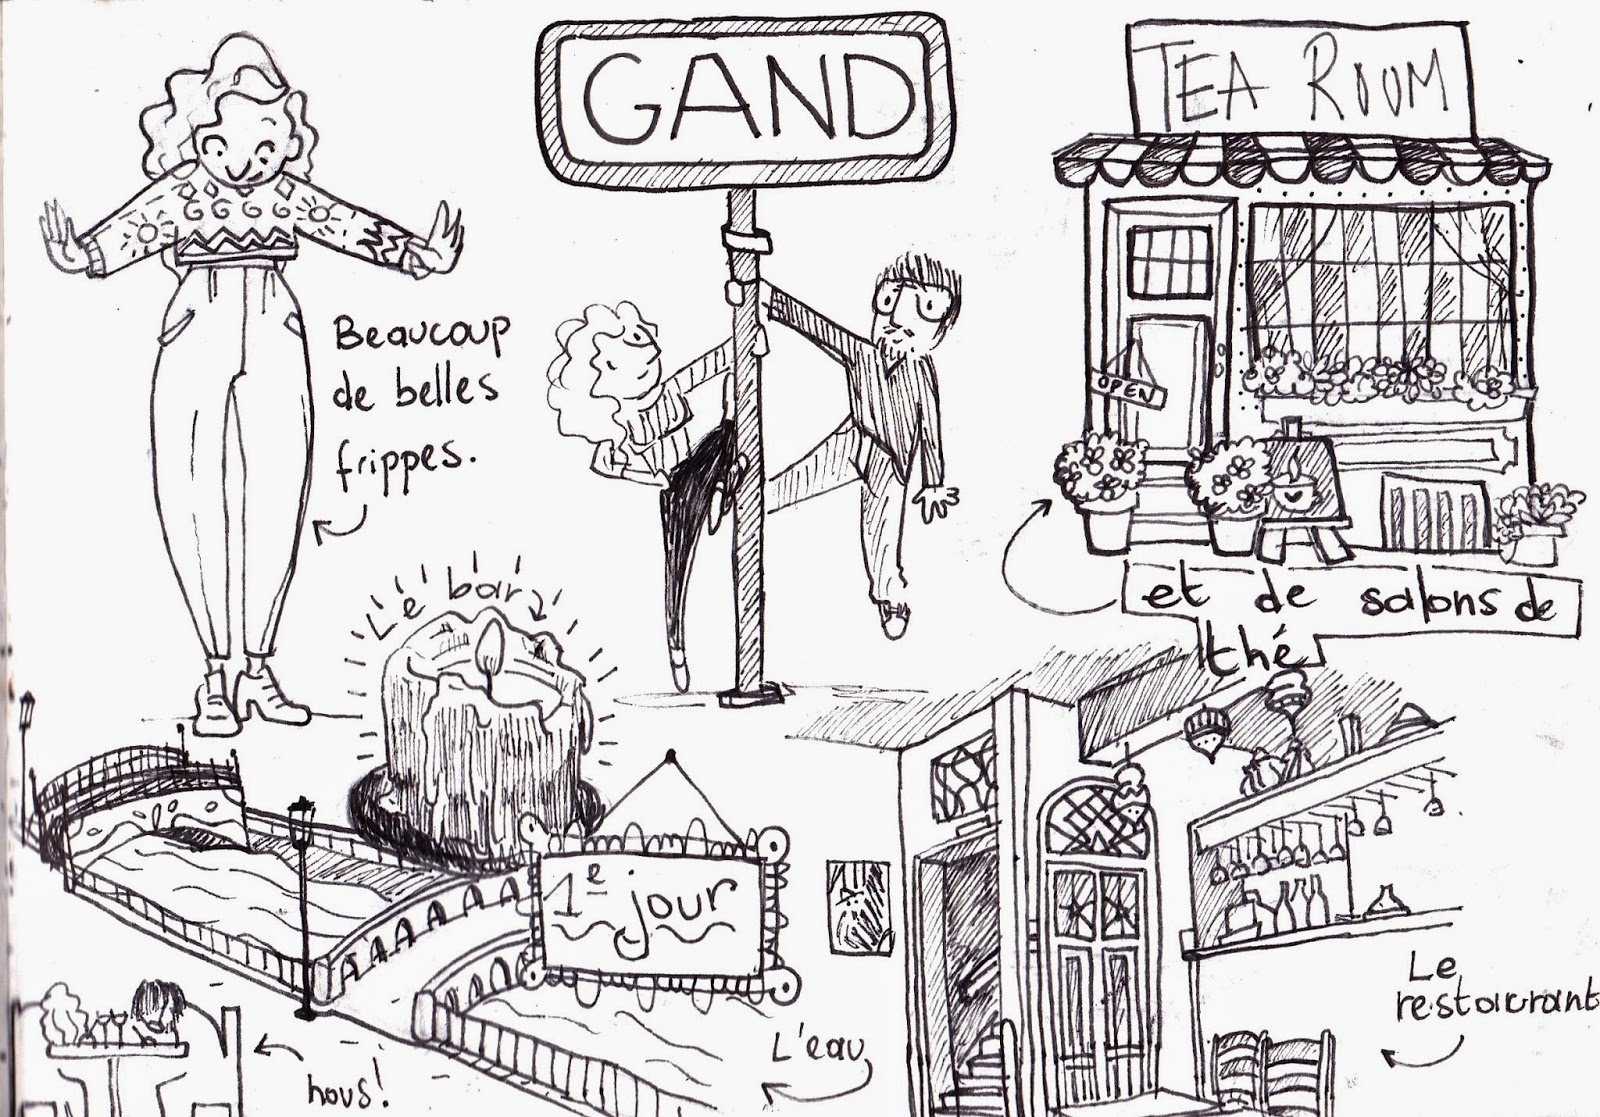 GAND
TEA ROOM
Beaucoup
de belles
frippes.
OPEN
et de salons de
thé
Le bar
1e jour
Le
restaurant
L'eau
nous!